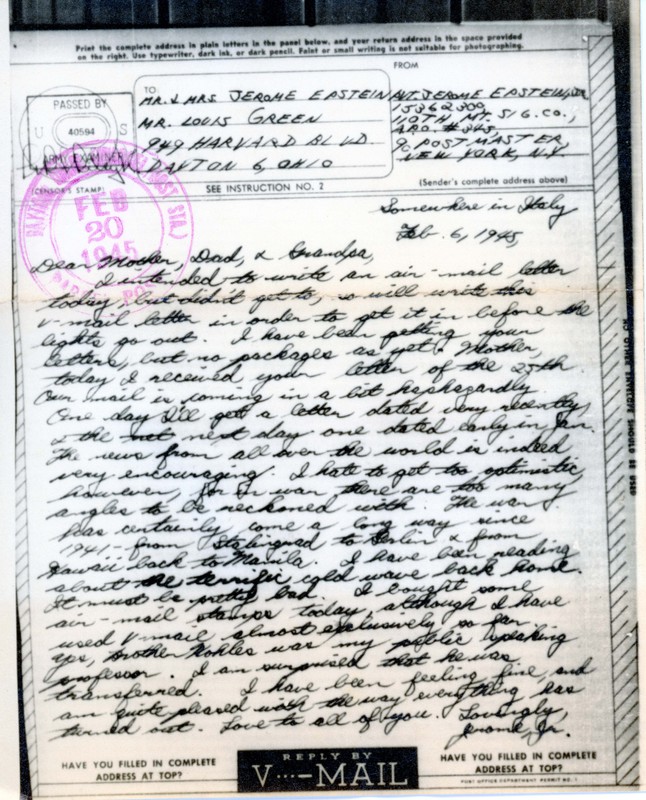 Print the complete address in plain letters in the panel below, and your return address in the space provided
on the right. Use typewriter, dark ink, or dark pencil. Faint or small writing is not suitable for photographing.
FROM
TO:
MR. & MRS JEROME EPSTEIN
MR. LOUIS GREEN
949 HARVARD BLVD
DAYTON 6, OHIO
PVT. JEROME EPSTEIN, JR.
15362300,
110TH MT. SIG. CO.,
APO. #345,
% POSTMASTER
NEW YORK, N.Y.
PASSED BY
U S
40594
ARMY EXAMINER
(CENSOR'S STAMP)
SEE INSTRUCTION NO. 2
(Sender's complete address above)
FEB
20
1945
Somewhere in Italy
Feb. 6, 1945
Dear Mother, Dad, & Grandpa,
I intended to write an air-mail letter
today, but didn't get to, so will write this
V-mail letter in order to get it in before the
lights go out. I have been getting your
letters, but no packages as yet. Mother,
today I received your letter of the 25th.
Our mail is coming in a bit haphazardly.
One day I'll get a letter dated very recently,
& the next day one dated early in Jan.
The news from all over the world is indeed
very encouraging. I hate to get too optimistic,
however, for in war there are too many
angles to be reckoned with. The war
has certainly come a long way since
1941 -- from Stalingrad to Berlin & from
Hawaii back to Manila. I have been reading
about the terrific cold wave back home.
It must be pretty bad. I bought some
air-mail stamps today, although I have
used V-mail almost exclusively so far.
Yes, Brother Kohles was my public speaking
professor. I am surprised that he was
transferred. I have been feeling fine, and
am quite pleased with the way everything has
turned out. Love to all of you. Lovingly,
Jerome, Jr.
HAVE YOU FILLED IN COMPLETE
ADDRESS AT TOP?
REPLY BY
V···—MAIL
HAVE YOU FILLED IN COMPLETE
ADDRESS AT TOP?
POST OFFICE DEPARTMENT PERMIT NO. 1